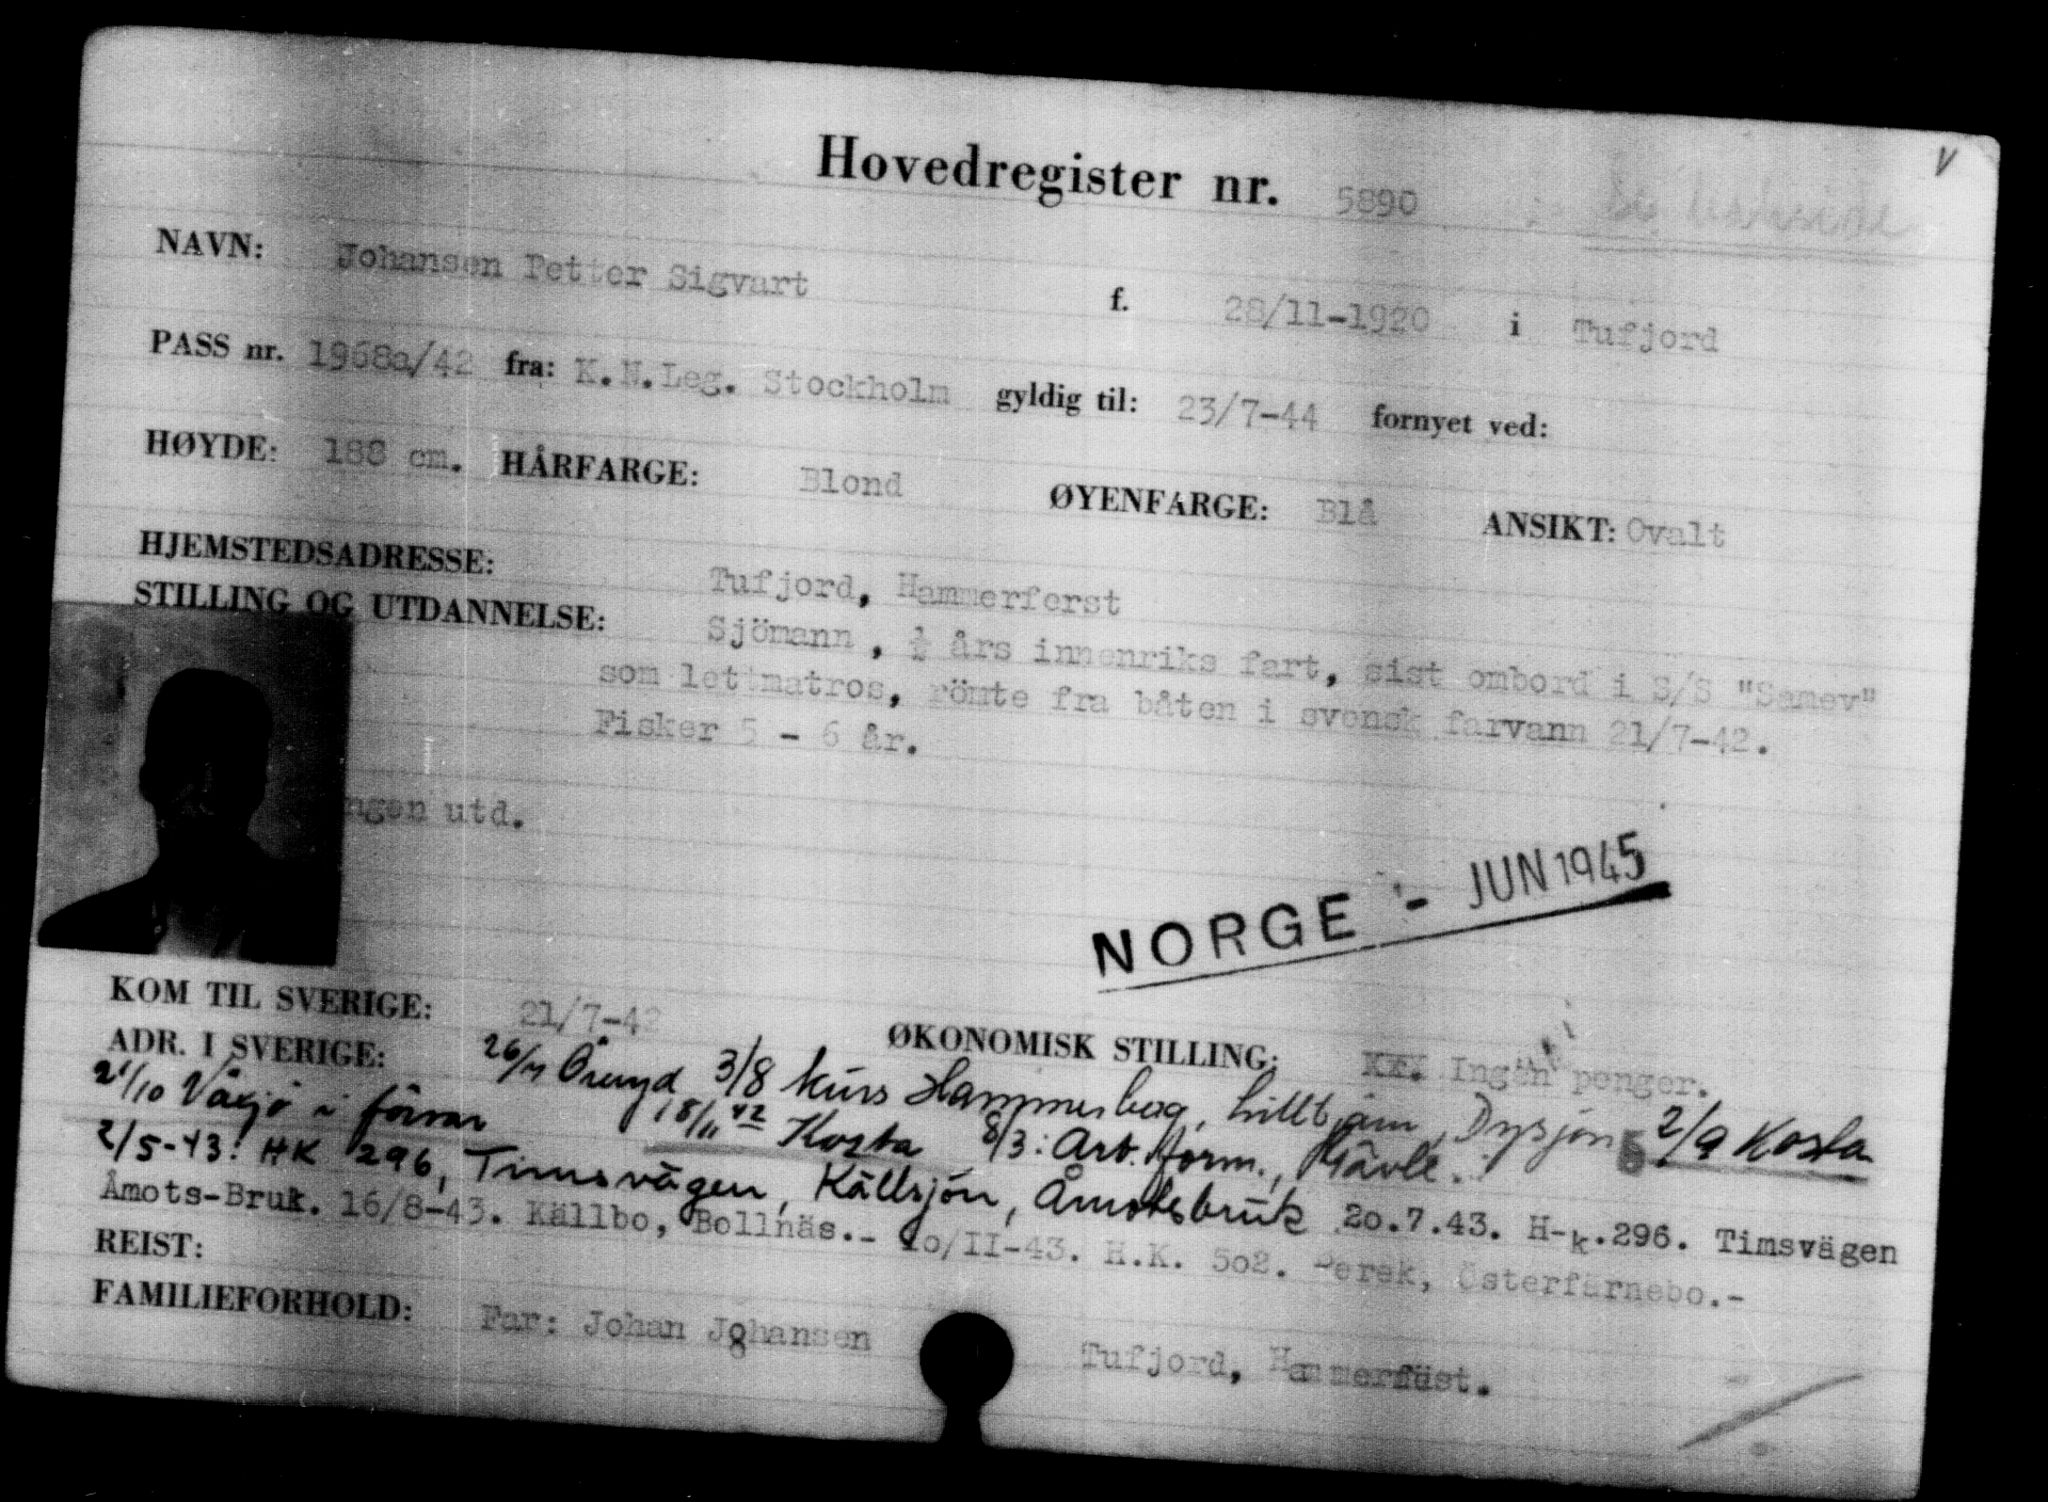 V
Hovedregister nr. 5890
NAVN: Johansen Petter Sigvart f. 28/11-1920 i Tufjord
PASS nr. 1968a/42 fra: K.N.Leg. Stockholm gyldig til: 23/7-44 fornyet ved:
HØYDE: 188 cm. HÅRFARGE: Blond ØYENFARGE: Blå ANSIKT: Ovalt
HJEMSTEDSADRESSE: Tufjord, Hammerferst
STILLING OG UTDANNELSE: Sjömann, ½ års innenriks fart, sist ombord i S/S "Samev"
som lettmatros, römte fra båten i svensk farvann 21/7-42.
Fisker 5 - 6 år.
ngen utd.
NORGE - JUN 1945
KOM TIL SVERIGE: 21/7-42 ØKONOMISK STILLING: Ingen penger.
ADR. I SVERIGE: 26/7 Öreryd 3/8 kurs Hammerbag, hilltjärn, Dysjön 2/9 Kosta
21/10 Växjö i förvar 18/11 42 Kosta 8/3: Arb. form., Gävle.
2/5-43: HK 296, Timsvägen, Källsjön, Åmotsbruk 20.7.43. H-k.296. Timsvägen
Åmots-Bruk. 16/8-43. Källbo, Bollnäs.- 10/II-43. H.K. 502. Berek, Österfärnebo.-
REIST:
FAMILIEFORHOLD: Far: Johan Johansen Tufjord, Hammerfest.